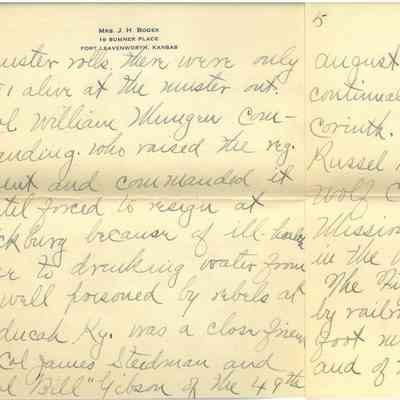 MRS. J. H. BOGEE
16 SUMNER PLACE
FORT LEAVENWORTH, KANSAS
muster rolls, there were only
alive at the muster out.
Col William Mungen Com-
anding. who raised the reg.
ent and commanded it
until forced to resign at
icksburg because of ill-health
to drinking water from
well poisoned by rebels at
aducah Ky. was a close friend
Col James Steedman and
Col "Bill" Gibson of the 49th
5
august
continual
Corinth.
Russel
Wolf C
Mission
in the
The Fi
by railro
foot m
and of